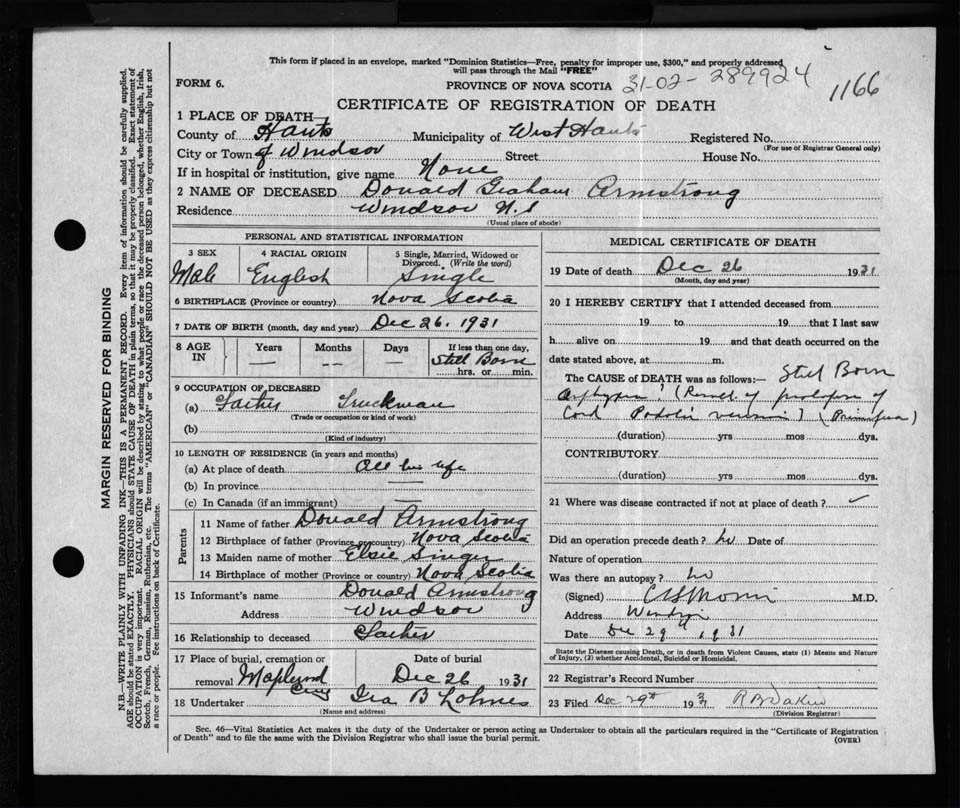 This form if placed in an envelope, marked "Dominion Statistics—Free, penalty for improper use, $300," and properly addressed
will pass through the Mail "FREE"
FORM 6.
PROVINCE OF NOVA SCOTIA 31-02-289924 1166
CERTIFICATE OF REGISTRATION OF DEATH
1 PLACE OF DEATH—
County of Hants Municipality of West Hants Registered No.
(For use of Registrar General only)
City or Town of Windsor Street House No.
If in hospital or institution, give name None
2 NAME OF DECEASED Donald Graham Armstrong
Residence Windsor N.S
(Usual place of abode)
PERSONAL AND STATISTICAL INFORMATION
3 SEX 4 RACIAL ORIGIN 5 Single, Married, Widowed or
Divorced. (Write the word)
Male English Single
6 BIRTHPLACE (Province or country) Nova Scotia
7 DATE OF BIRTH (month, day and year) Dec 26. 1931
8 AGE IN Years Months Days If less than one day,
— — — Still Born
hrs. or min.
9 OCCUPATION OF DECEASED
(a) Father Truckman
(Trade or occupation or kind of work)
(b)
(Kind of industry)
10 LENGTH OF RESIDENCE (in years and months)
(a) At place of death All his life
(b) In province —
(c) In Canada (if an immigrant) —
Parents
11 Name of father Donald Armstrong
12 Birthplace of father (Province or country) Nova Scotia
13 Maiden name of mother Elsie Singer
14 Birthplace of mother (Province or country) Nova Scotia
15 Informant's name Donald Armstrong
Address Windsor
16 Relationship to deceased Father
17 Place of burial, cremation or Date of burial
removal Cty Dec 26 1931
18 Undertaker Ira B Lohnes
(Name and address)
MEDICAL CERTIFICATE OF DEATH
19 Date of death Dec 26 1931
(Month, day and year)
20 I HEREBY CERTIFY that I attended deceased from
19 to 19 that I last saw
h alive on 19 and that death occurred on the
date stated above, at m.
The CAUSE of DEATH was as follows:— Still Born
(Result of prolapse of
Cord Podalic version) (Primipara)
(duration) yrs mos dys.
CONTRIBUTORY
(duration) yrs mos dys.
21 Where was disease contracted if not at place of death?
Did an operation precede death? no Date of
Nature of operation
Was there an autopsy? no
(Signed) M.D.
Address Windsor
Date Dec 29th 1931
State the Disease causing Death, or in death from Violent Causes, state (1) Means and Nature
of Injury, (2) whether Accidental, Suicidal or Homicidal.
22 Registrar's Record Number
23 Filed Dec 29th 1931
(Division Registrar)
Sec. 46—Vital Statistics Act makes it the duty of the Undertaker or person acting as Undertaker to obtain all the particulars required in the "Certificate of Registration
of Death" and to file the same with the Division Registrar who shall issue the burial permit.
(OVER)
MARGIN RESERVED FOR BINDING
N.B.—WRITE PLAINLY WITH UNFADING INK—THIS IS A PERMANENT RECORD. Every item of information should be carefully supplied.
AGE should be stated EXACTLY. PHYSICIANS should STATE CAUSE OF DEATH in plain terms, so that it may be properly classified. Exact statement of
OCCUPATION is very important. RACIAL ORIGIN will be described by stating to what people or race the deceased person belonged, whether English, Irish,
Scotch, French, German, Russian, Ruthenian, etc. The terms "AMERICAN" or "CANADIAN" SHOULD NOT BE USED as they express citizenship but not
a race or people. Fee instructions on back of Certificate.